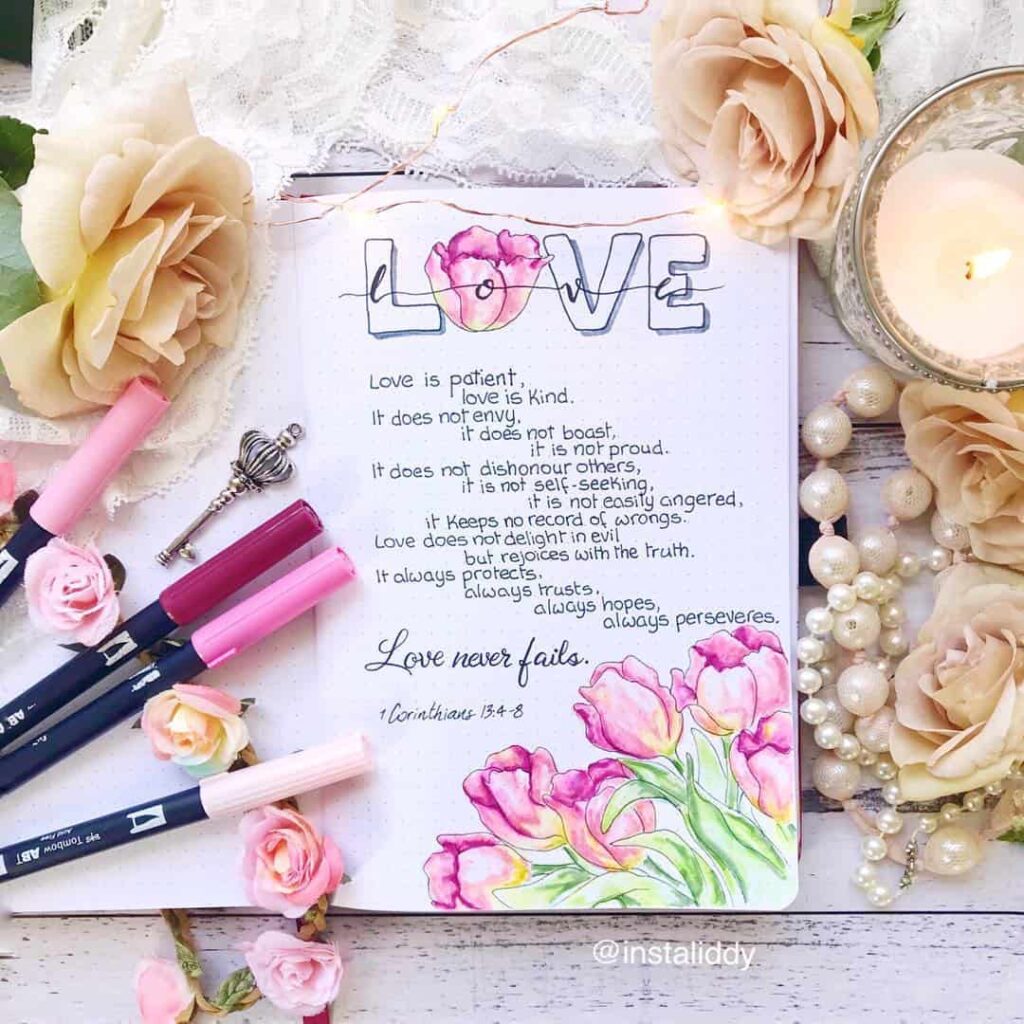 LOVE
love
Love is patient,
love is kind.
It does not envy,
it does not boast,
it is not proud.
It does not dishonour others,
it is not self-seeking,
it is not easily angered,
it keeps no record of wrongs.
Love does not delight in evil
but rejoices with the truth.
It always protects,
always trusts,
always hopes,
always perseveres.
Love never fails.
1 Corinthians 13:4-8
ABT
Tombow ABT
@instaliddy